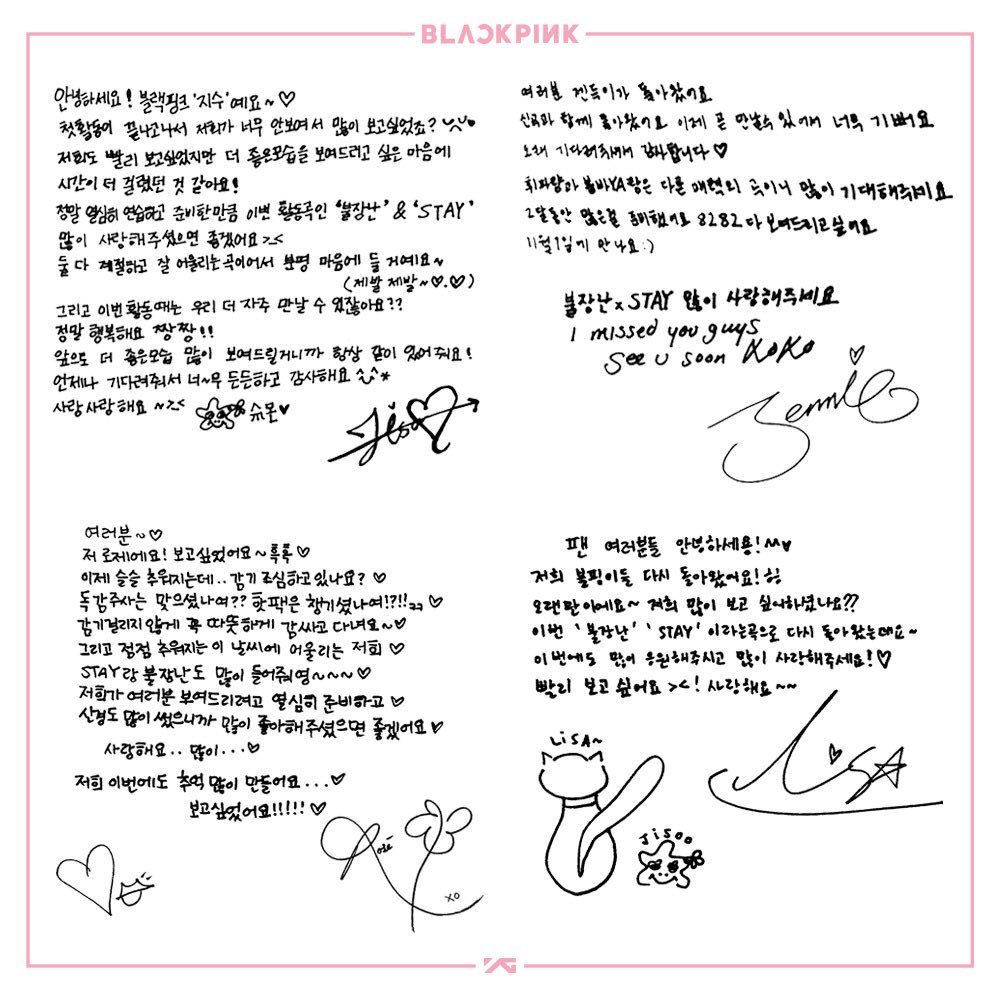 BLACKPINK
안녕하세요! 블랙핑크 '지수'예요~♡
첫활동이 끝나고나서 저희가 너무 안보여서 많이 보고싶었죠?
저희도 빨리 보고싶었지만 더 좋은모습을 보여드리고 싶은 마음에
시간이 더 걸렸던 것 같아요!
정말 열심히 연습하고 준비한만큼 이번 활동곡인 '불장난' & 'STAY'
많이 사랑해주셨으면 좋겠어요>_<
둘 다 계절하고 잘 어울리는곡이어서 분명 마음에 들 거예요~
(제발 제발~♡.♡)
그리고 이번활동때는 우리 더 자주 만날 수 있잖아요??
정말 행복해요 짱짱!!
앞으로 더 좋은모습 많이 보여드릴거니까 항상 같이 있어줘요!
언제나 기다려줘서 너~무 든든하고 감사해요
사랑사랑해요 ~>_< 슈몬♥
Jisoo
여러분 젠득이가 돌아왔어요
신곡과 함께 돌아왔어요 이제 곧 만날수 있어서 너무 기뻐요
오래 기다려주셔서 감사합니다♡
휘파람과 붐바YA랑은 다른 매력의 곡이니 많이 기대해주세요
2달동안 많은걸 준비했어요 8282 다 보여드리고싶어요
11월1일에 만나요 :)
불장난 x STAY 많이 사랑해주세요
I missed you guys
see u soon XOXO
Jennie
여러분~♡
저 로제에요! 보고싶었어요~흑흑♡
이제 슬슬 추워지는데.. 감기 조심하고있나요?♡
독감주사는 맞으셨나여?? 핫팩은 챙기셨나여!?!!ㄱㄱ♡
감기걸리지 않게 꼭 따뜻하게 감싸고 다녀요~♡
그리고 점점 추워지는 이 날씨에 어울리는 저희♡
STAY랑 불장난도 많이 들어줘영~~~~♡
저희가 여러분 보여드리려고 열심히 준비하고♡
신경도 많이 썼으니까 많이 좋아해주셨으면 좋겠어요♡
사랑해요.. 많이...♡
저희 이번에도 추억 많이 만들어요...♡
보고싶었어요!!!!!♡
Rosé
XO
팬 여러분들 안녕하세용!^^♥
저희 블핑이들 다시 돌아왔어요!히
오랜만이에요~ 저희 많이 보고 싶어하셨나요??
이번 '불장난' 'STAY' 이라는곡으로 다시 돌아왔는데요~
이번에도 많이 응원해주시고 많이 사랑해주세요!♡
빨리 보고 싶어요 ><! 사랑해요~~
LiSA~
JiSOO
Lisa
YG